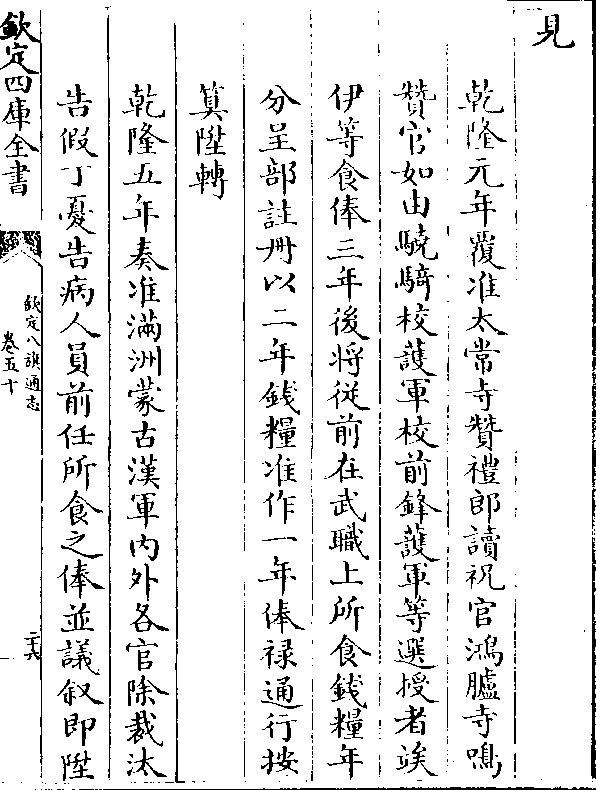 見
乾隆元年覆准太常寺贊禮郎讀祝官鴻臚寺鳴
贊官如由驍騎校護軍校前鋒護軍等選授者俟
伊等食俸三年後將從前在武職上所食錢糧年
分呈部註冊以二年錢糧准作一年俸祿通行按
算陞轉
乾隆五年奏准滿洲蒙古漢軍內外各官除裁汰
告假丁憂告病人員前任所食之俸並議叙即陞
欽定四庫全書
欽定八旗通志
卷五十
二十六